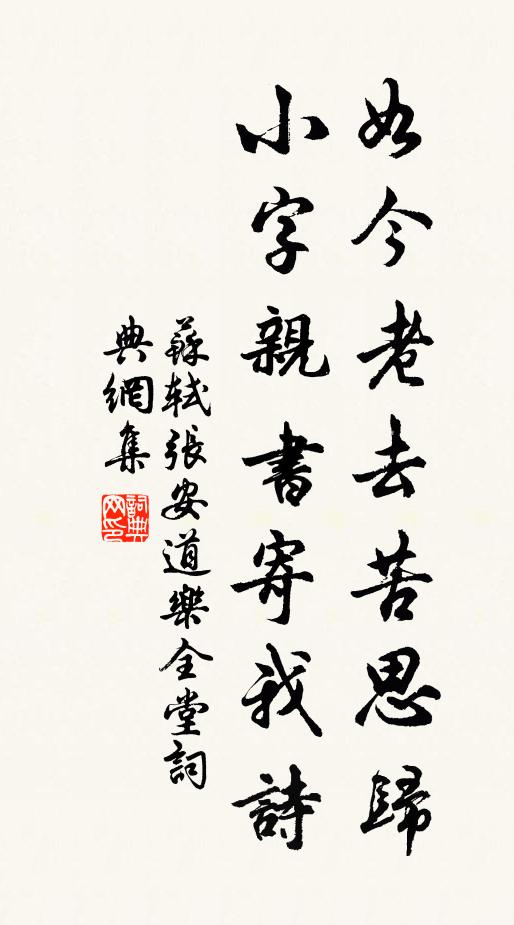 如今老去苦思歸
小字親書寄我詩
蘇軾張安道樂全堂詞
典網集
詞典
网印